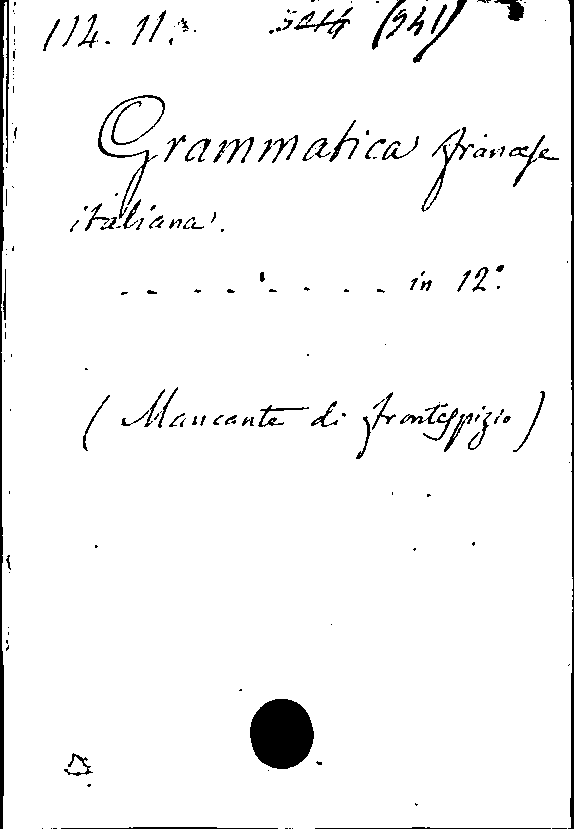 114. 11. (341)
Grammatica francese
italiana.
- - - - - - - - in 12°.
(Mancante di frontespizio)